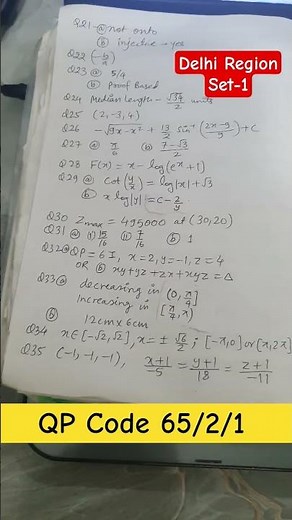 Q21 - ⓐ not onto
ⓑ injective → yes
Delhi Region
Set-1
Q22 (-b/a)
Q23 ⓐ 5/9
ⓑ Proof Based
Q24 Median length - √34/2 units
Q25 (2,-3,4)
Q26 -√9x-x² + 13/2 sin⁻¹(2x-9/9)+C
Q27 ⓐ π/6 ⓑ 7-√3/2
Q28 F(x) = x - log(eˣ+1)
Q29 ⓐ cot(y/x) = log|x| + √3
ⓑ x log|y| = C - 2/y
Q30 Zmax = 495000 at (30,20)
Q31 ⓐ (i) 15/16 (ii) 7/16 ⓑ 1
Q32 ⓐ QP = 6I, x=2, y=-1, z=4
OR ⓑ xy+yz+zx+xyz = Δ
Q33 ⓐ decreasing in (0, π/4]
Increasing in [π/4, π)
ⓑ 12cm x 6cm
Q34 x∈[-√2,√2], x=±√6/2 ; [-π,0] or [π,2π]
Q35 (-1,-1,-1), x+1/-5 = y+1/18 = z+1/-11
QP Code 65/2/1